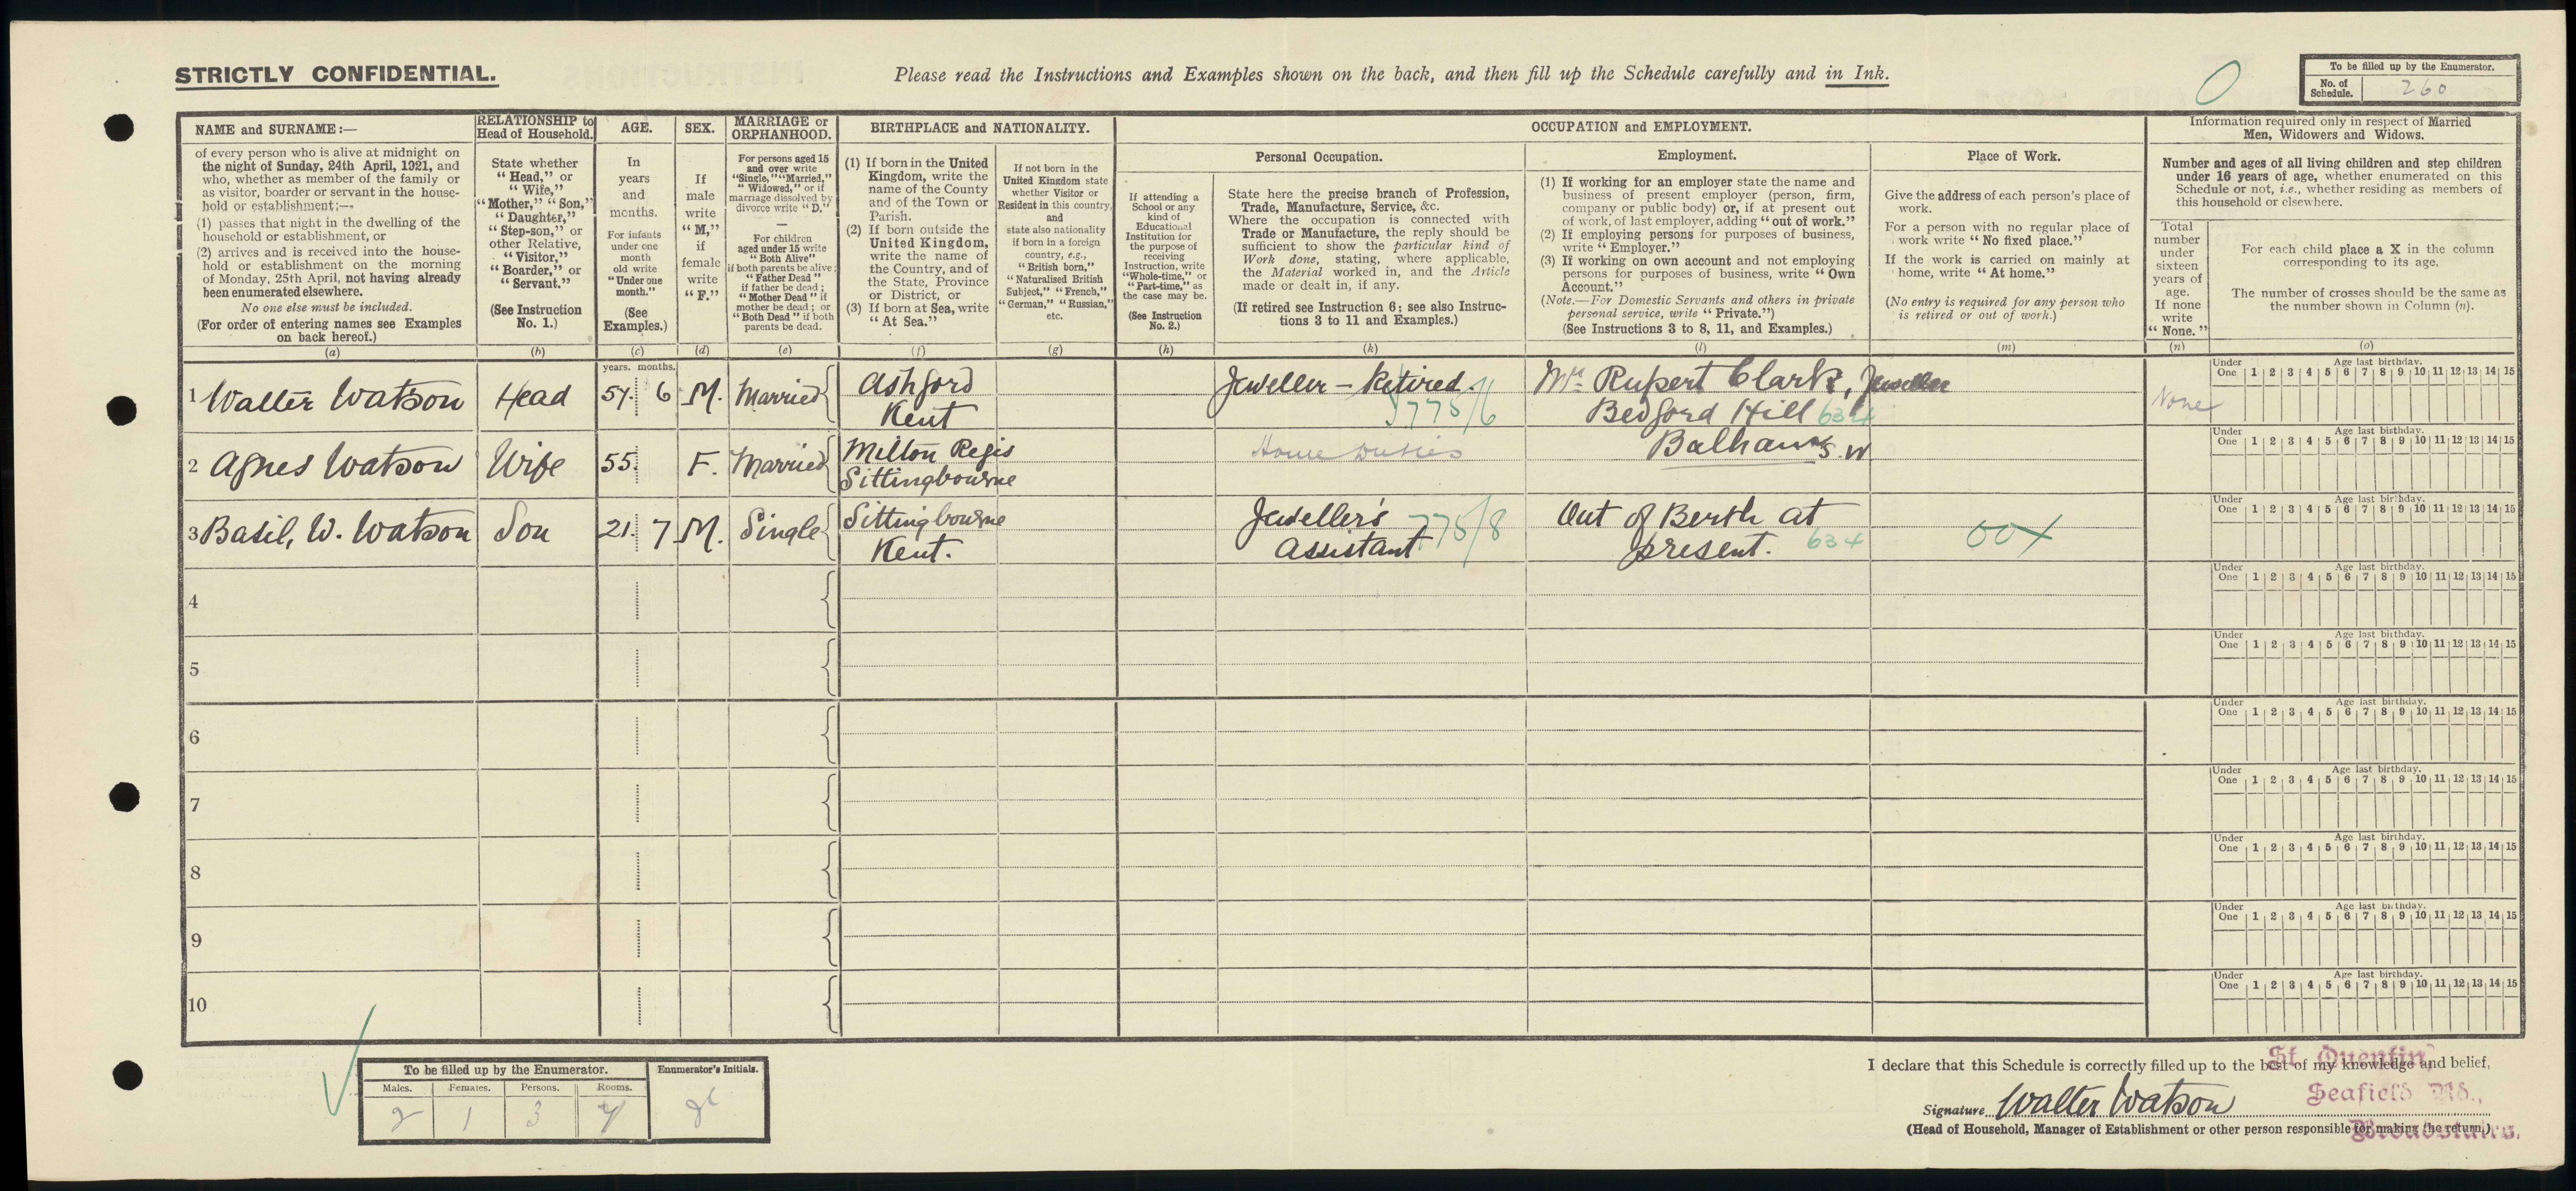 STRICTLY CONFIDENTIAL.
Please read the Instructions and Examples shown on the back, and then fill up the Schedule carefully and in Ink.
To be filled up by the Enumerator.
No. of Schedule. 260
NAME and SURNAME:—
of every person who is alive at midnight on
the night of Sunday, 24th April, 1921, and
who, whether as member of the family or
as visitor, boarder or servant in the house-
hold or establishment:—
(1) passes that night in the dwelling of the
household or establishment, or
(2) arrives and is received into the house-
hold or establishment on the morning
of Monday, 25th April, not having already
been enumerated elsewhere.
No one else must be included.
(For order of entering names see Examples
on back hereof.)
(a)
RELATIONSHIP to
Head of Household.
State whether
"Head," or
"Wife,"
"Mother," "Son,"
"Daughter,"
"Step-son," or
other Relative,
"Visitor,"
"Boarder," or
"Servant."
(See Instruction
No. 1.)
(b)
AGE.
In
years
and
months.
For infants
under one
month
old write
"Under one
month."
(See
Examples.)
(c)
SEX.
If
male
write
"M,"
if
female
write
"F."
(d)
MARRIAGE or
ORPHANHOOD.
For persons aged 15
and over write
"Single," "Married,"
"Widowed," or if
marriage dissolved by
divorce write "D."
—
For children
aged under 15 write
"Both Alive"
if both parents be alive;
"Father Dead"
if father be dead;
"Mother Dead" if
mother be dead; or
"Both Dead" if both
parents be dead.
(e)
BIRTHPLACE and NATIONALITY.
(1) If born in the United
Kingdom, write the
name of the County
and of the Town or
Parish.
(2) If born outside the
United Kingdom,
write the name of
the Country, and of
the State, Province
or District, or
(3) If born at Sea, write
"At Sea."
(f)
If not born in the
United Kingdom state
whether Visitor or
Resident in this country,
and
state also nationality
if born in a foreign
country, e.g.,
"British born,"
"Naturalised British
Subject," "French,"
"German," "Russian,"
etc.
(g)
OCCUPATION and EMPLOYMENT.
Personal Occupation.
If attending a
School or any
kind of
Educational
Institution for
the purpose of
receiving
Instruction, write
"Whole-time," or
"Part-time," as
the case may be.
(See Instruction
No. 2.)
(h)
State here the precise branch of Profession,
Trade, Manufacture, Service, &c.
Where the occupation is connected with
Trade or Manufacture, the reply should be
sufficient to show the particular kind of
Work done, stating, where applicable,
the Material worked in, and the Article
made or dealt in, if any.
(If retired see Instruction 6; see also Instruc-
tions 3 to 11 and Examples.)
(k)
Employment.
(1) If working for an employer state the name and
business of present employer (person, firm,
company or public body) or, if at present out
of work, of last employer, adding "out of work."
(2) If employing persons for purposes of business,
write "Employer."
(3) If working on own account and not employing
persons for purposes of business, write "Own
Account."
(Note.—For Domestic Servants and others in private
personal service, write "Private.")
(See Instructions 3 to 8, 11, and Examples.)
(l)
Place of Work.
Give the address of each person's place of
work.
For a person with no regular place of
work write "No fixed place."
If the work is carried on mainly at
home, write "At home."
(No entry is required for any person who
is retired or out of work.)
(m)
Information required only in respect of Married
Men, Widowers and Widows.
Number and ages of all living children and step children
under 16 years of age, whether enumerated on this
Schedule or not, i.e., whether residing as members of
this household or elsewhere.
Total
number
under
sixteen
years of
age.
If none
write
"None."
(n)
For each child place a X in the column
corresponding to its age.
The number of crosses should be the same as
the number shown in Column (n).
(o)
years. months.
1 Walter Watson Head 57. 6 M. Married Ashford Kent Jeweller – Retired. 775/6 Mr. Rupert Clark, Jeweller Bedford Hill 634 Balham S.W. None
Under One Age last birthday. 1 2 3 4 5 6 7 8 9 10 11 12 13 14 15
2 Agnes Watson Wife 55. F. Married Milton Regis Sittingbourne Home Duties
Under One Age last birthday. 1 2 3 4 5 6 7 8 9 10 11 12 13 14 15
3 Basil, W. Watson Son 21. 7 M. Single Sittingbourne Kent. Jeweller's Assistant 775/8 Out of Berth at present. 634 00X
Under One Age last birthday. 1 2 3 4 5 6 7 8 9 10 11 12 13 14 15
4
Under One Age last birthday. 1 2 3 4 5 6 7 8 9 10 11 12 13 14 15
5
Under One Age last birthday. 1 2 3 4 5 6 7 8 9 10 11 12 13 14 15
6
Under One Age last birthday. 1 2 3 4 5 6 7 8 9 10 11 12 13 14 15
7
Under One Age last birthday. 1 2 3 4 5 6 7 8 9 10 11 12 13 14 15
8
Under One Age last birthday. 1 2 3 4 5 6 7 8 9 10 11 12 13 14 15
9
Under One Age last birthday. 1 2 3 4 5 6 7 8 9 10 11 12 13 14 15
10
Under One Age last birthday. 1 2 3 4 5 6 7 8 9 10 11 12 13 14 15
To be filled up by the Enumerator.
Males. Females. Persons. Rooms.
2 1 3 7
Enumerator's Initials.
I declare that this Schedule is correctly filled up to the best of my knowledge and belief,
Signature Walter Watson
(Head of Household, Manager of Establishment or other person responsible for making the return.)
St. Quentin
Seafield Rd.,
Broadstairs.